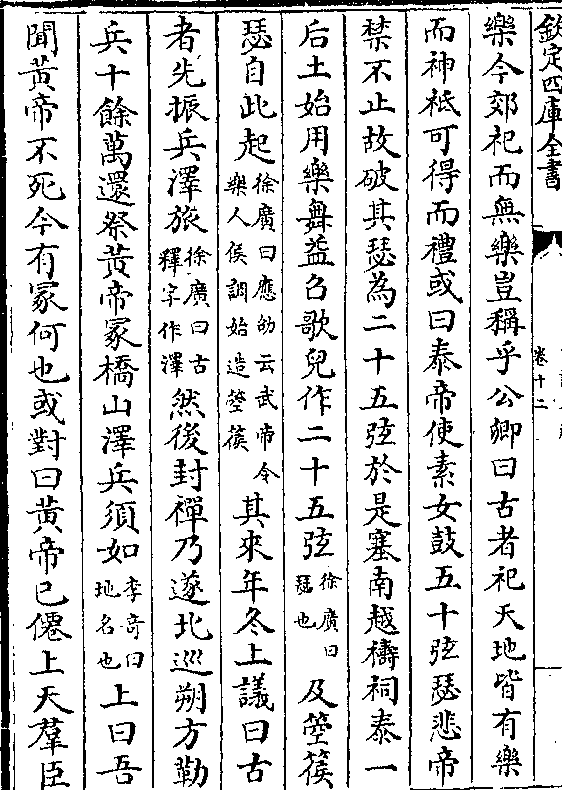 欽定四庫全書
卷十二
樂今郊祀而無樂豈稱乎公卿曰古者祀天地皆有樂
而神祇可得而禮或曰泰帝使素女鼓五十弦瑟悲帝
禁不止故破其瑟為二十五弦於是塞南越禱祠泰一
后土始用樂舞益召歌兒作二十五弦徐廣曰瑟也及箜篌
瑟自此起徐廣曰應劭云武帝令樂人侯調始造箜篌其來年冬上議曰古
者先振兵澤旅徐廣曰古釋字作澤然後封禪乃遂北巡朔方勒
兵十餘萬還祭黃帝冢橋山澤兵須如李竒曰地名也上曰吾
聞黃帝不死今有冢何也或對曰黃帝已僊上天羣臣